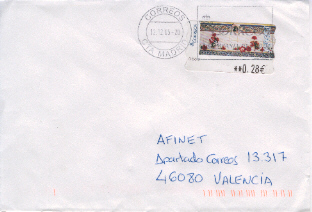 CORREOS
CTA MADRID
**0.28€
AFINET
Apartado Correos 13.317
46080 VALENCIA